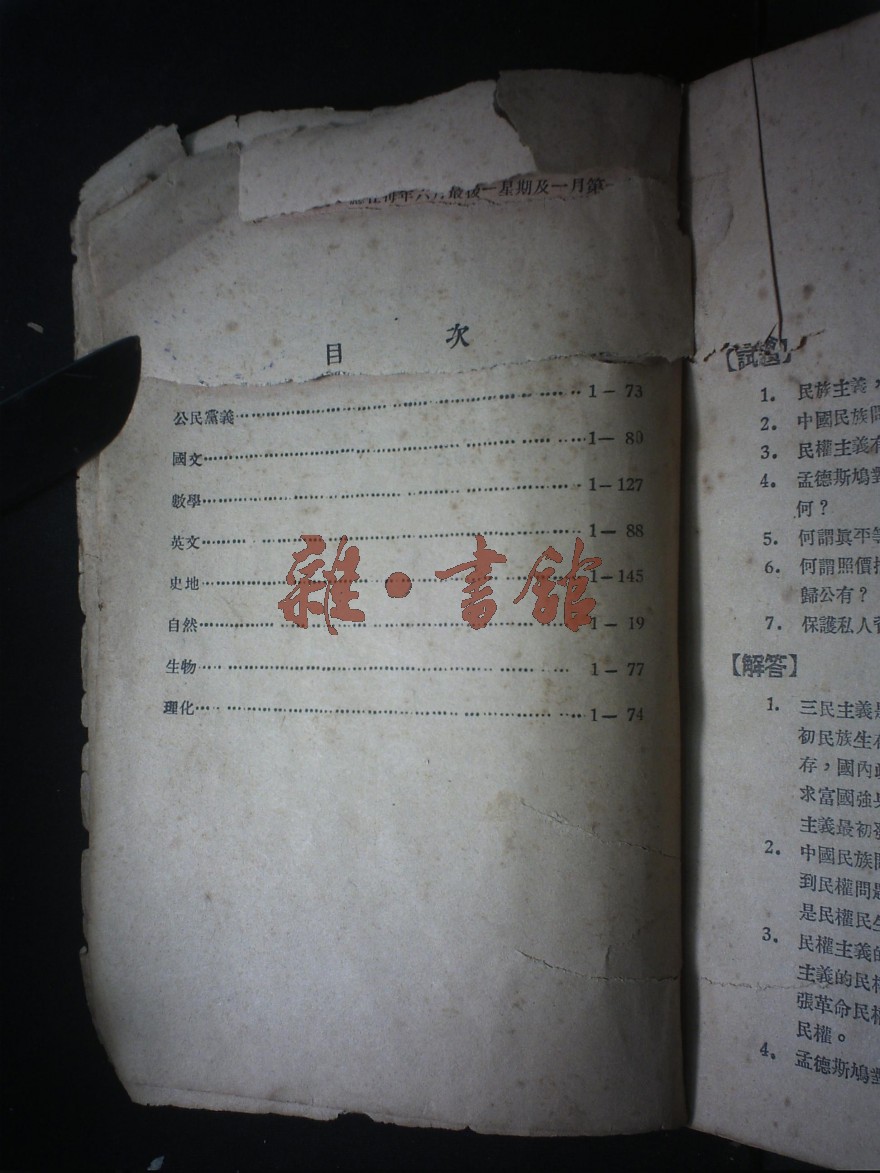 星期及一月第一
目 次
公民黨義 1－73
國文 1－80
數學 1－127
英文 1－88
史地 1－145
自然 1－19
生物 1－77
理化 1－74
雜·書館
【試題】
1. 民族主義
2. 中國民族問
3. 民權主義有
4. 孟德斯鳩對
何？
5. 何謂眞平等
6. 何謂照價
歸公有？
7. 保護私人
【解答】
1. 三民主義是
初民族生存
存，國內
求富國強
主義最初
2. 中國民族問
到民權問題
是民權民生
3. 民權主義的
主義的民權
張革命民權
民權。
4. 孟德斯鳩對